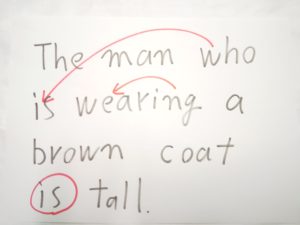 The man who
is wearing a
brown coat
is tall.